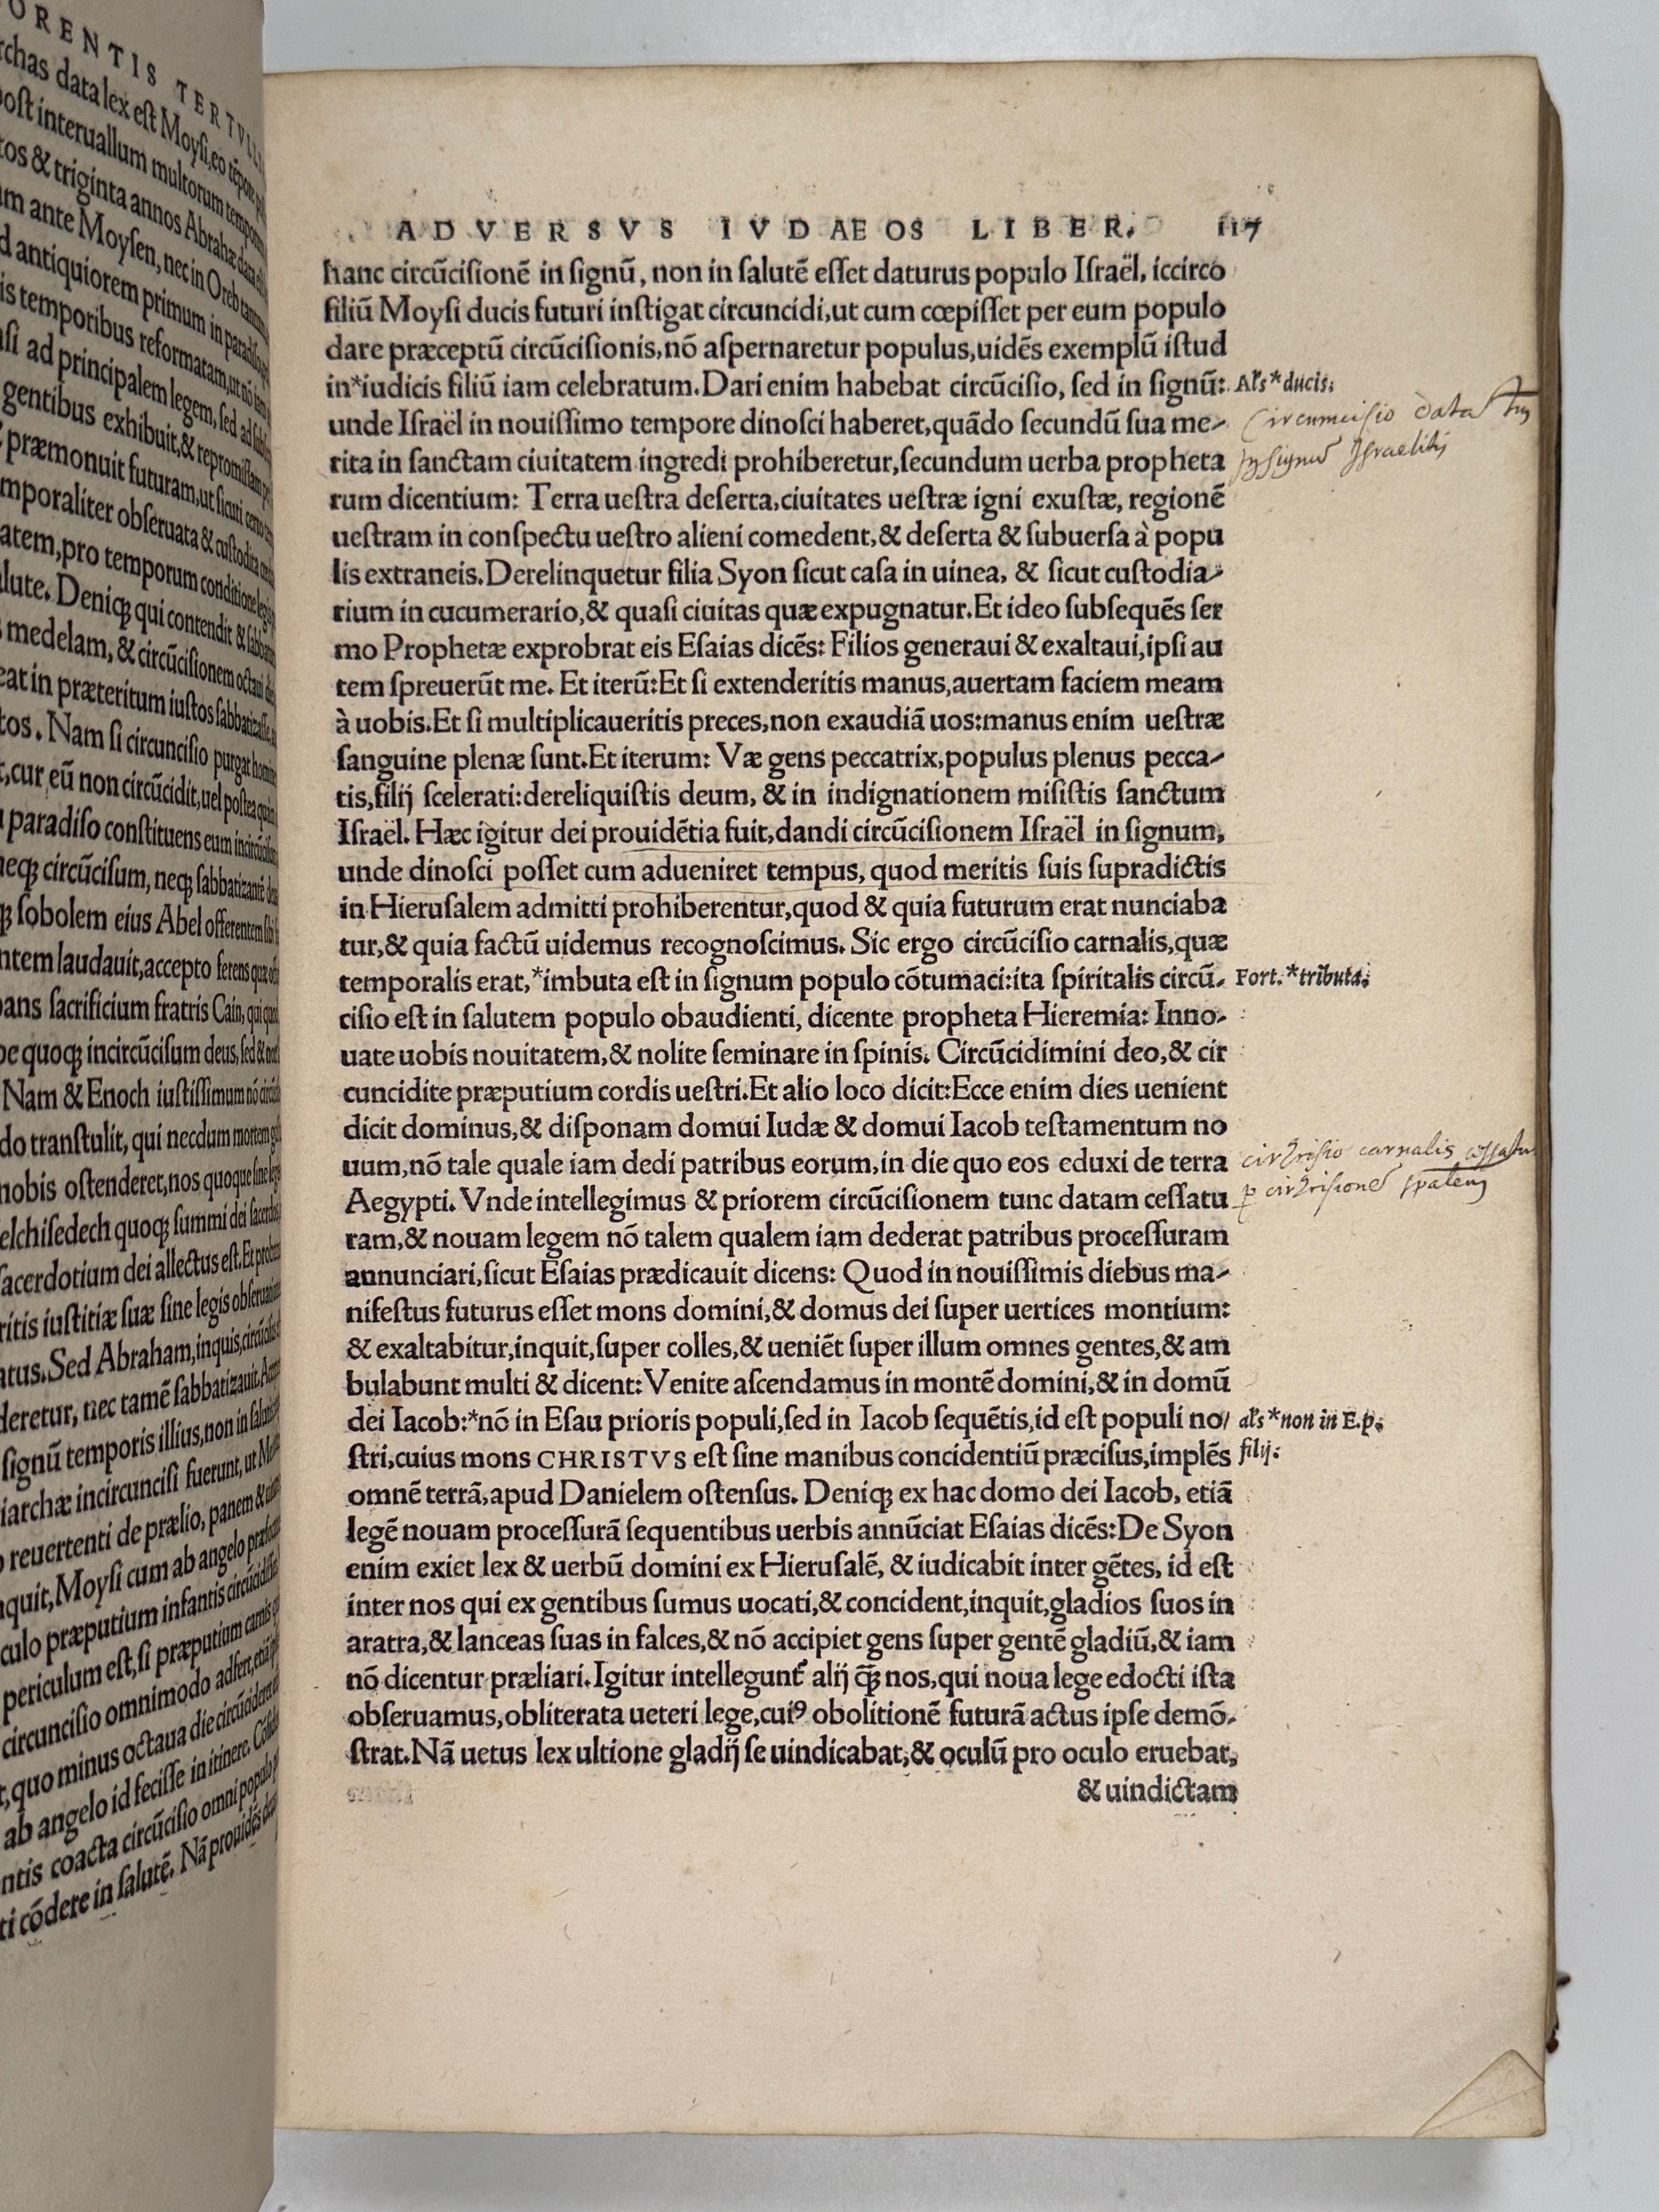 ORENTIS TERTVLLI
rchas data lex est Moysi, eo tēpore
post interuallum multorum temporum
tos & triginta annos Abrahæ data
m ante Moysen, nec in Oreb tantum
d antiquiorem primum in paradiso
is temporibus reformatam, ut nō iam
si ad principalem legem, sed ad
gentibus exhibuit, & repromissam
præmonuit futuram, ut sicuti
mporaliter obseruata & custodita
atem, pro temporum conditione
lute. Deniqꝫ qui contendit & sabbatum
medelam, & circūcisionem octaui
eat in præteritum iustos sabbatizasse,
tos. Nam si circuncisio purgat
, cur eū non circūcidit, uel postea
paradiso constituens eum
neqꝫ circūcisum, neqꝫ sabbatizantē
ꝫ sobolem eius Abel offerentem
ntem laudauit, accepto ferens quæ
ans sacrificium fratris Cain, qui
oe quoqꝫ incircūcisum deus, sed &
Nam & Enoch iustissimum nō
do transtulit, qui necdum mortem
nobis ostenderet, nos quoque sine
elchisedech quoqꝫ summi dei
sacerdotium dei allectus est. Et
ritis iustitiæ suæ sine legis
atus. Sed Abraham, inquis,
deretur, nec tamē sabbatizauit.
signū temporis illius, non in
iarchæ incircuncisi fuerunt, ut
reuertenti de prælio, panem &
nquit, Moysi cum ab angelo
culo præputium infantis
periculum est, si præputium carnis
circuncisio omnimodo adfert,
, quo minus octaua die circūcideret
ab angelo id fecisse in itinere.
ntis coacta circūcisio omni populo
ti cōdere in salutē. Nā prouidēs
ADVERSVS IVDAEOS LIBER. 117
hanc circūcisionē in signū, non in salutē esset daturus populo Israël, iccirco
filiū Moysi ducis futuri instigat circuncidi, ut cum cœpisset per eum populo
dare præceptū circūcisionis, nō aspernaretur populus, uidēs exemplū istud
in*iudicis filiū iam celebratum. Dari enim habebat circūcisio, sed in signū: Al's *ducis.
unde Israël in nouissimo tempore dinosci haberet, quādo secundū sua me- Circumcisio data
rita in sanctam ciuitatem ingredi prohiberetur, secundum uerba propheta Israelitis
rum dicentium: Terra uestra deserta, ciuitates uestræ igni exustæ, regionē
uestram in conspectu uestro alieni comedent, & deserta & subuersa à popu
lis extraneis. Derelinquetur filia Syon sicut casa in uinea, & sicut custodia-
rium in cucumerario, & quasi ciuitas quæ expugnatur. Et ideo subsequēs ser
mo Prophetæ exprobrat eis Esaias dicēs: Filios generaui & exaltaui, ipsi au
tem spreuerūt me. Et iterū: Et si extenderitis manus, auertam faciem meam
à uobis. Et si multiplicaueritis preces, non exaudiā uos: manus enim uestræ
sanguine plenæ sunt. Et iterum: Væ gens peccatrix, populus plenus pecca-
tis, filij scelerati: dereliquistis deum, & in indignationem misistis sanctum
Israël. Hæc igitur dei prouidētia fuit, dandi circūcisionem Israël in signum,
unde dinosci posset cum adueniret tempus, quod meritis suis supradictis
in Hierusalem admitti prohiberentur, quod & quia futurum erat nunciaba
tur, & quia factū uidemus recognoscimus. Sic ergo circūcisio carnalis, quæ
temporalis erat, *imbuta est in signum populo cōtumaci: ita spiritalis circū- Fort. *tributa.
cisio est in salutem populo obaudienti, dicente propheta Hieremia: Inno-
uate uobis nouitatem, & nolite seminare in spinis. Circūcidimini deo, & cir
cuncidite præputium cordis uestri. Et alio loco dicit: Ecce enim dies uenient
dicit dominus, & disponam domui Iudæ & domui Iacob testamentum no
uum, nō tale quale iam dedi patribus eorum, in die quo eos eduxi de terra carnalis
Aegypti. Vnde intellegimus & priorem circūcisionem tunc datam cessatu
ram, & nouam legem nō talem qualem iam dederat patribus processuram
annunciari, sicut Esaias prædicauit dicens: Quod in nouissimis diebus ma-
nifestus futurus esset mons domini, & domus dei super uertices montium:
& exaltabitur, inquit, super colles, & ueniēt super illum omnes gentes, & am
bulabunt multi & dicent: Venite ascendamus in montē domini, & in domū
dei Iacob: *nō in Esau prioris populi, sed in Iacob sequētis, id est populi no/ al's *non in E. p.
stri, cuius mons CHRISTVS est sine manibus concidentiū præcisus, implēs filij.
omnē terrā, apud Danielem ostensus. Deniqꝫ ex hac domo dei Iacob, etiā
legē nouam processurā sequentibus uerbis annūciat Esaias dicēs: De Syon
enim exiet lex & uerbū domini ex Hierusalē, & iudicabit inter gētes, id est
inter nos qui ex gentibus sumus uocati, & concident, inquit, gladios suos in
aratra, & lanceas suas in falces, & nō accipiet gens super gentē gladiū, & iam
nō dicentur præliari. Igitur intellegunt' alij q̄ꝫ nos, qui noua lege edocti ista
obseruamus, obliterata ueteri lege, cui⁹ obolitionē futurā actus ipse demō-
strat. Nā uetus lex ultione gladij se uindicabat, & oculū pro oculo eruebat,
& uindictam